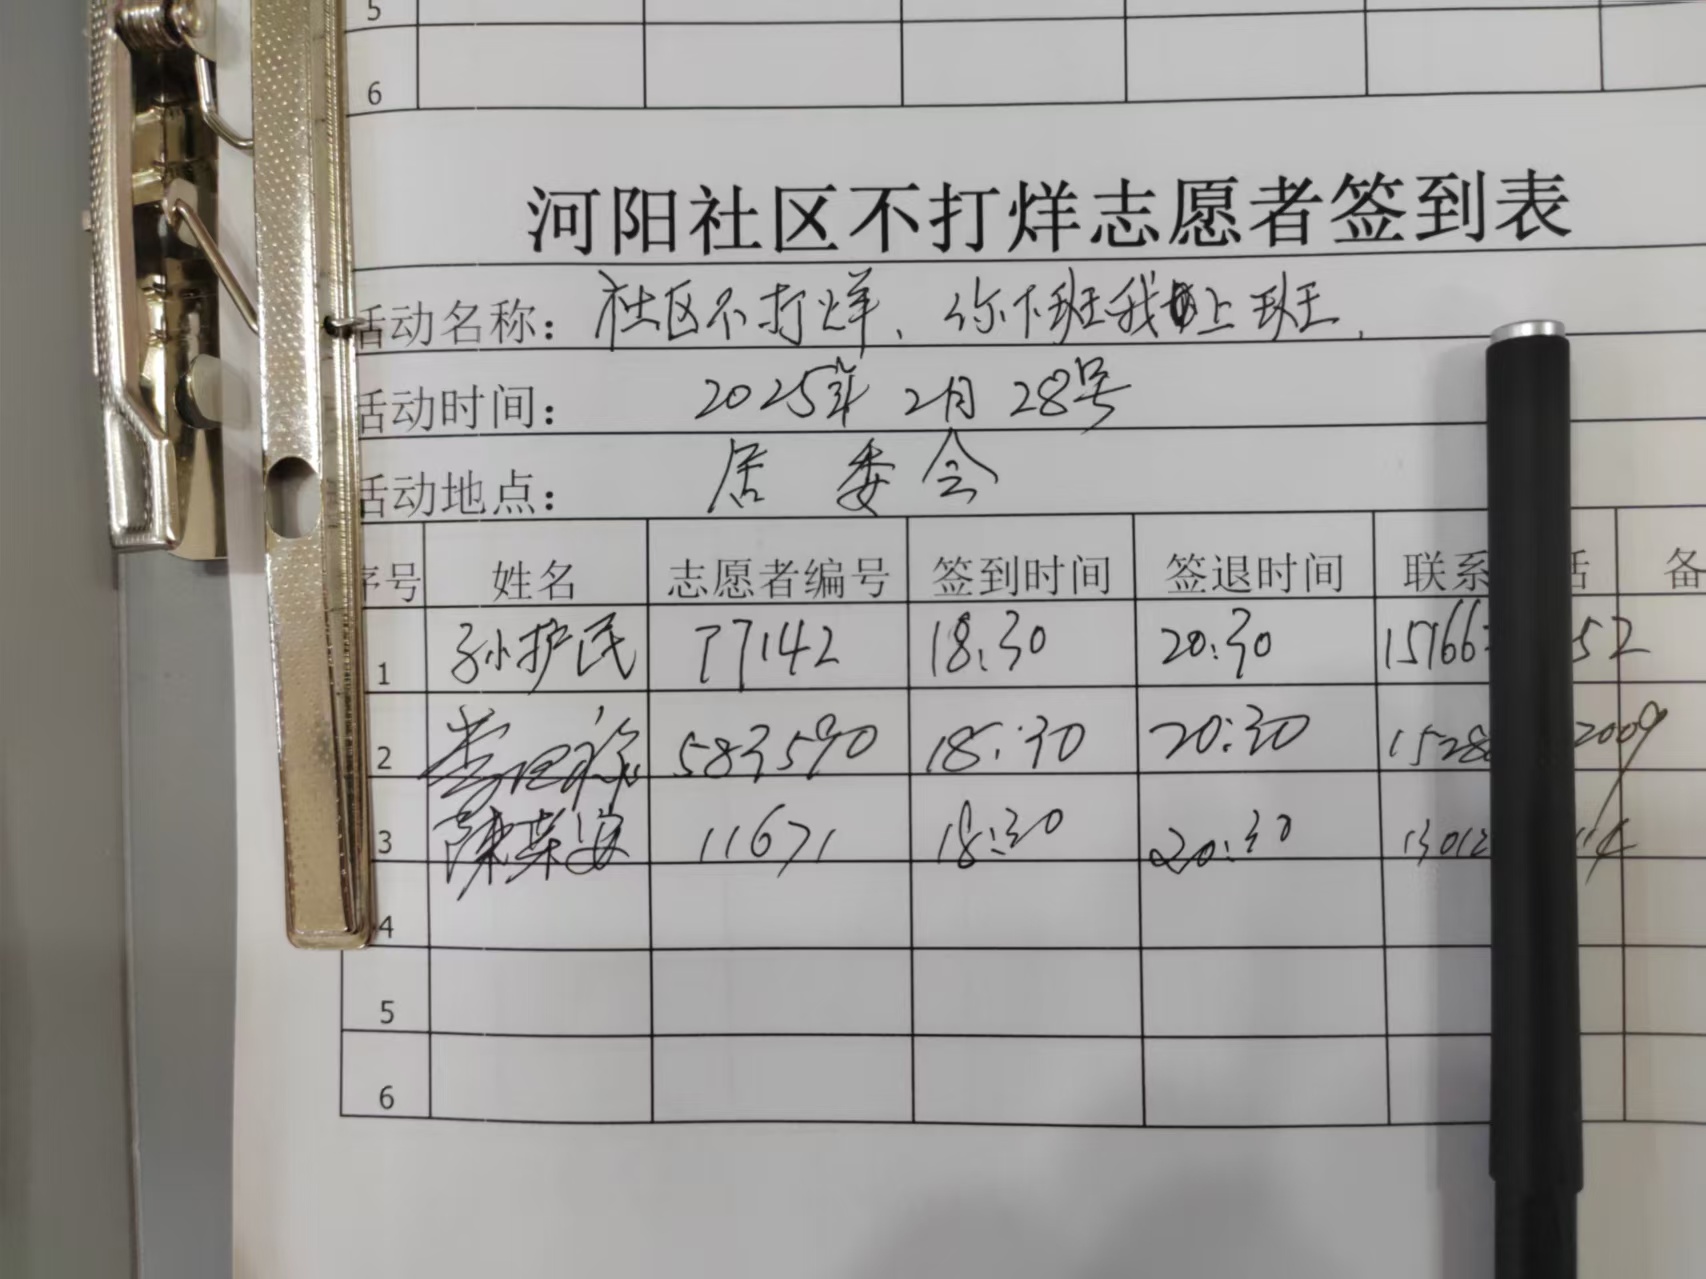 5
6
河阳社区不打烊志愿者签到表
活动名称：社区不打烊、你下班我上班.
活动时间：2025年2月28号
活动地点：居委会
序号 姓名 志愿者编号 签到时间 签退时间 联系 话 备
1 孙护民 77142 18:30 20:30 15166 52
2 583590 18:30 20:30 1528 2009
3 陈荣安 11671 18:30 20:30 13012 14
4
5
6